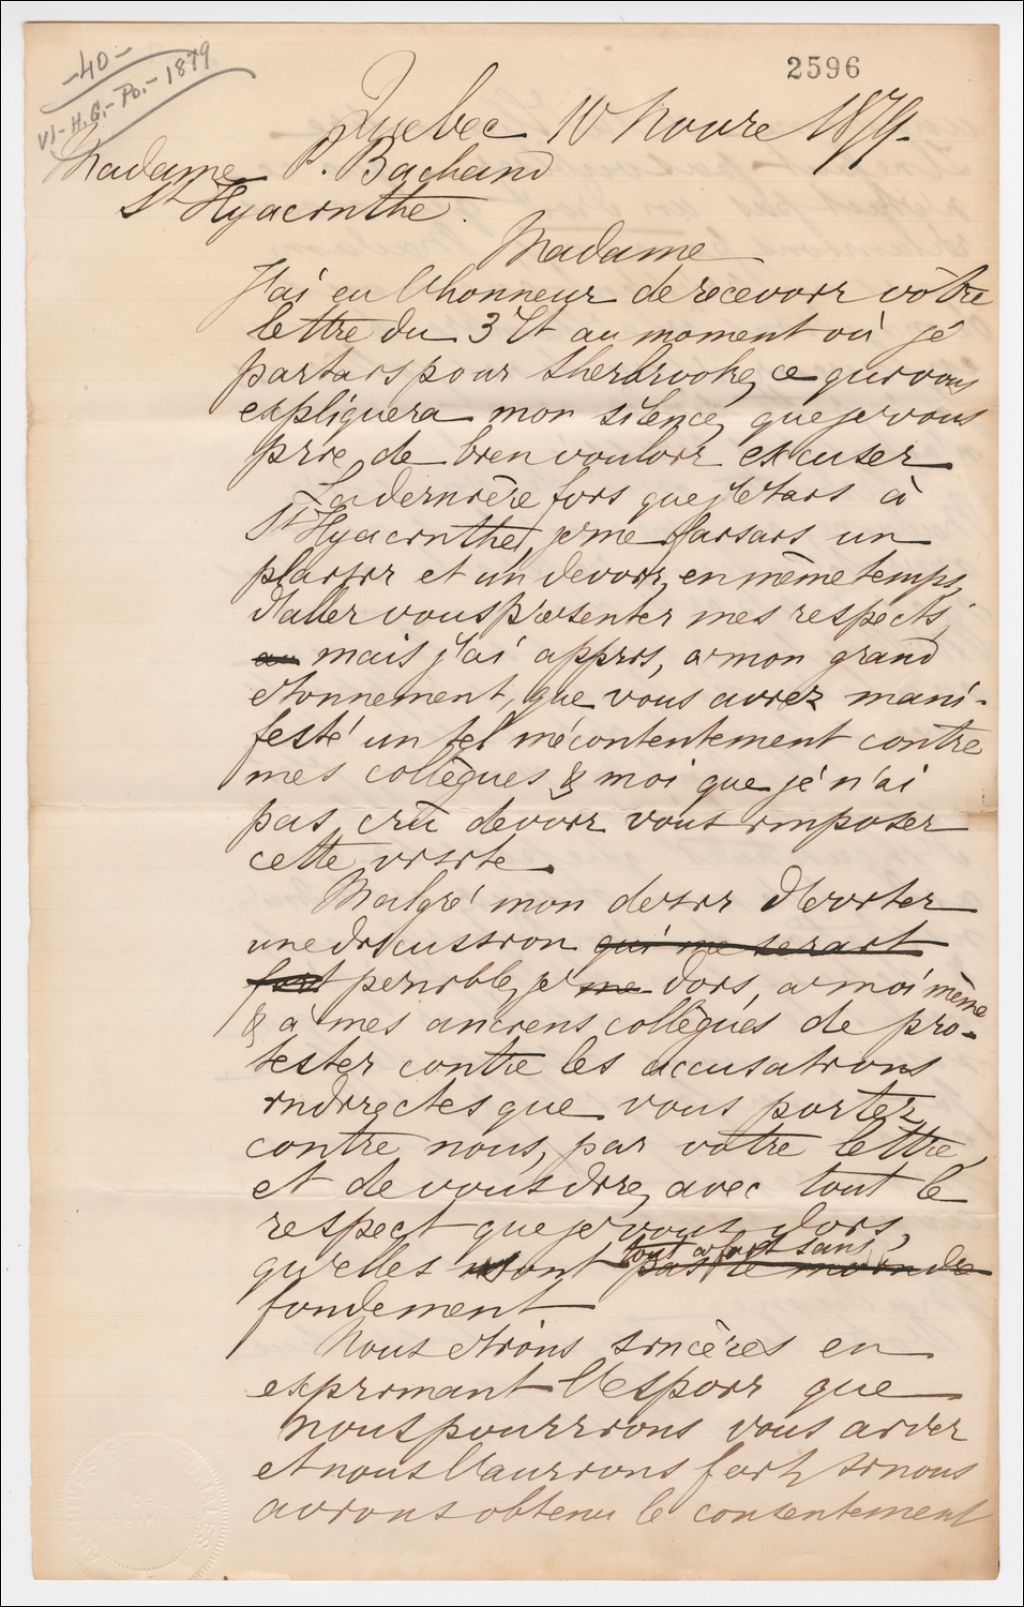 -40-
VI-H.G.-Po.-1879
2596
Quebec 10 Novre 1879-
Madame P. Bachand
St Hyacinthe.
Madame
J'ai eu l'honneur de recevoir vôtre
lettre du 3 Ct au moment où je
partais pour Sherbrooke, ce qui vous
expliquera mon silence, que je vous
prie de bien vouloir excuser
La dernière fois que j'étais à
St Hyacinthe, je me faisais un
plaisir et un devoir, en même temps,
d'aller vous présenter mes respects;
au mais j'ai appris, à mon grand
étonnement, que vous aviez mani-
festé un tel mécontentement contre
mes collègues & moi que je n'ai
pas crû devoir vous imposer
cette visite.
Malgré mon désir d'éviter
une discussion qui me serait
fort penible, je me dois, à moi même
& à mes anciens collègues de pro-
tester contre les accusations
indirectes que vous portez
contre nous, par votre lettre,
et de vous dire, avec tout le
respect que je vous dois,
tout à fait sans
qu'elles sont pas le moindre
fondement
Nous étions sincères en
exprimant l'espoir que
nous pourrions vous aider
et nous l'aurions fait, si nous
avions obtenu le consentement